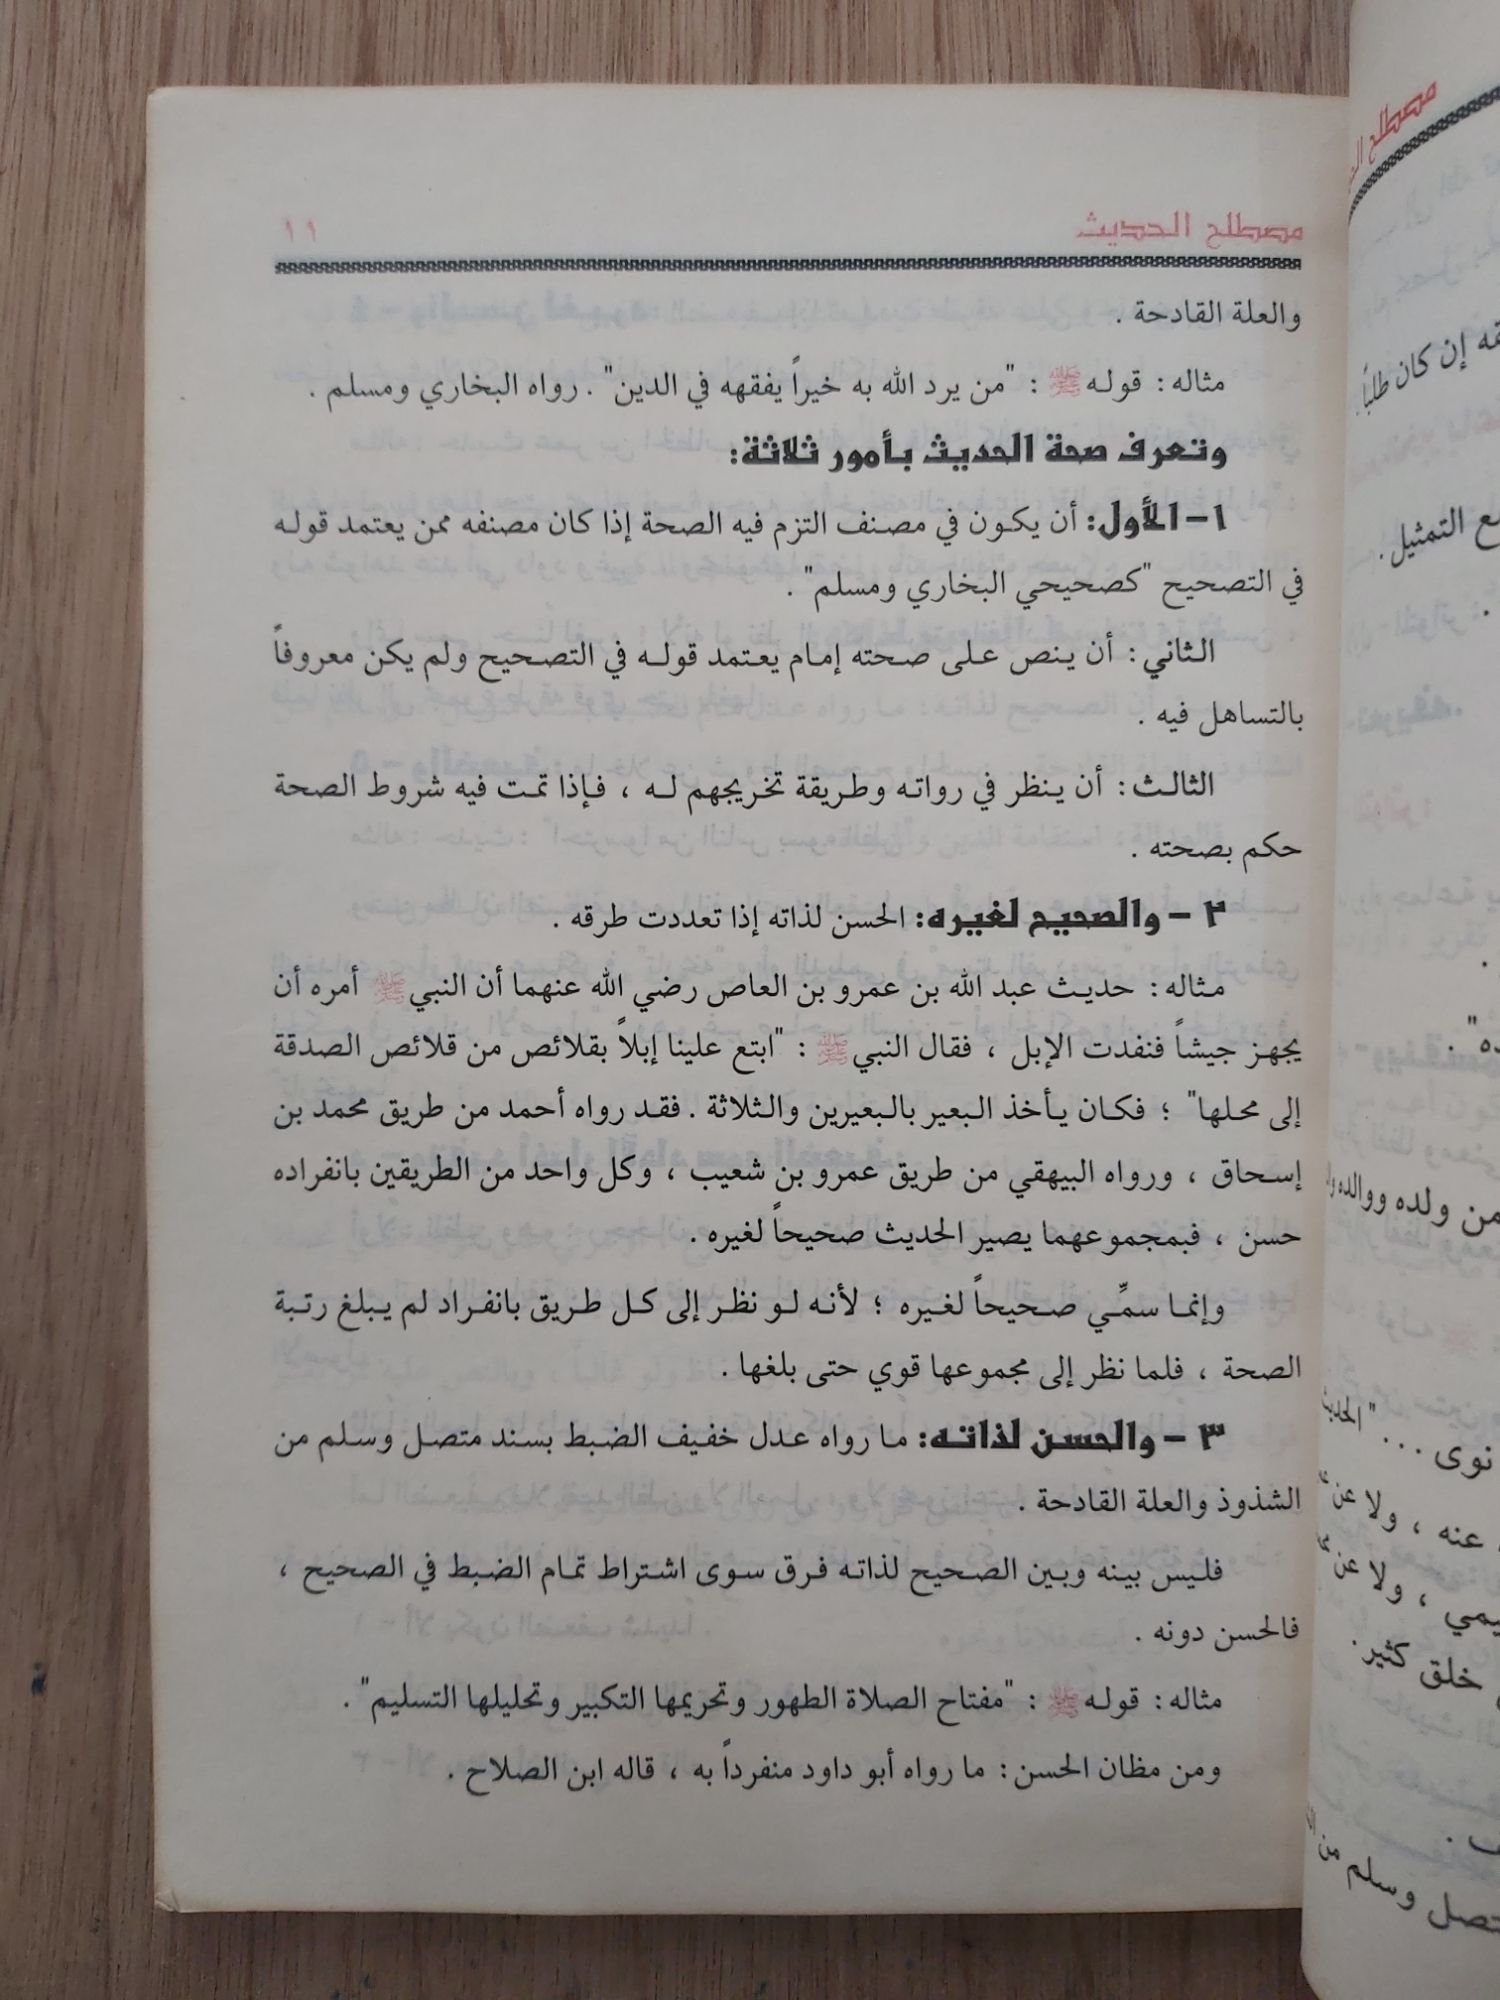 مصطلح الحديث ١١
والعلة القادحة .
مثاله : قوله ﷺ : "من يرد الله به خيراً يفقهه في الدين" . رواه البخاري ومسلم .
وتعرف صحة الحديث بأمور ثلاثة:
١- الأول: أن يكون في مصنف التزم فيه الصحة إذا كان مصنفه ممن يعتمد قوله
في التصحيح "كصحيحي البخاري ومسلم" .
الثاني : أن ينص على صحته إمام يعتمد قوله في التصحيح ولم يكن معروفاً
بالتساهل فيه .
الثالث : أن ينظر في رواته وطريقة تخريجهم له ، فإذا تمت فيه شروط الصحة
حكم بصحته .
٢ - والصحيح لغيره: الحسن لذاته إذا تعددت طرقه .
مثاله : حديث عبد الله بن عمرو بن العاص رضي الله عنهما أن النبي ﷺ أمره أن
يجهز جيشاً فنفدت الإبل ، فقال النبي ﷺ : "ابتع علينا إبلاً بقلائص من قلائص الصدقة
إلى محلها" ؛ فكان يأخذ البعير بالبعيرين والثلاثة . فقد رواه أحمد من طريق محمد بن
إسحاق ، ورواه البيهقي من طريق عمرو بن شعيب ، وكل واحد من الطريقين بانفراده
حسن ، فبمجموعهما يصير الحديث صحيحاً لغيره .
وإنما سمِّي صحيحاً لغيره ؛ لأنه لو نظر إلى كل طريق بانفراد لم يبلغ رتبة
الصحة ، فلما نظر إلى مجموعها قوي حتى بلغها .
٣ - والحسن لذاته: ما رواه عدل خفيف الضبط بسند متصل وسلم من
الشذوذ والعلة القادحة .
فليس بينه وبين الصحيح لذاته فرق سوى اشتراط تمام الضبط في الصحيح ،
فالحسن دونه .
مثاله : قوله ﷺ : "مفتاح الصلاة الطهور وتحريمها التكبير وتحليلها التسليم" .
ومن مظان الحسن : ما رواه أبو داود منفرداً به ، قاله ابن الصلاح .
مصطلح
إن كان طلباً
مع التمثيل .
من ولده ووالده
نوى ...
عنه ، ولا عن
ولا عن
خلق كثير .
وسلم من